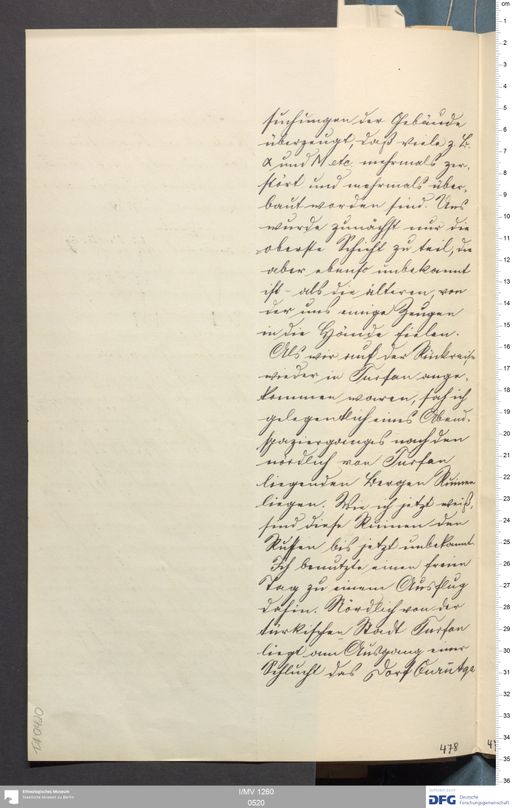 suchungen der Gebäude
überzeugt, daß viele z. B.
α und M etc mehrmals zer-
stört und mehrmals über-
baut worden sind. Uns
wurde zunächst nur die
oberste Schicht zu teil, die
aber ebenso unbekannt
ist - als die älteren, von
der uns einige Zeugen
in die Hände fielen.
Als wir auf der Rückreise
wieder in Turfan ange-
kommen waren, sah ich
gelegentlich eines Abend-
spazierganges nach den
nördlich von Turfan
liegenden Bergen Ruinen
liegen. Wie ich jetzt weiß,
sind diese Ruinen den
Russen bis jetzt unbekannt.
Ich benutzte einen freien
Tag zu einem Ausflug
dahin. Nördlich von der
türkischen Stadt Turfan
liegt am Ausgang einer
Schlucht das Dorf
478
TA 0420
Ethnologisches Museum
Staatliche Museen zu Berlin
I/MV 1260
0520
DFG Deutsche
Forschungsgemeinschaft